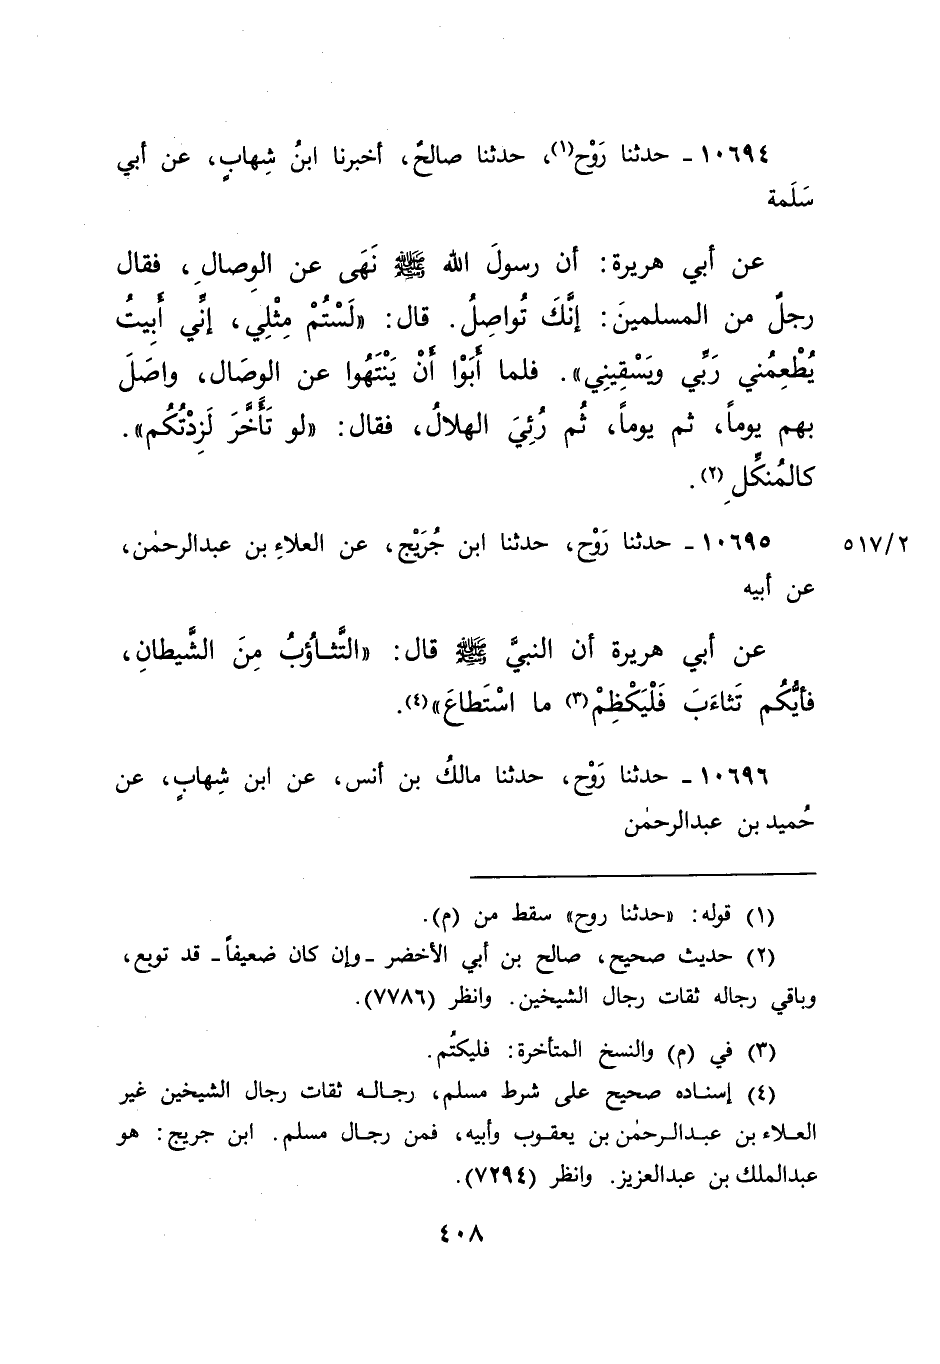 ١٠٦٩٤ ـ حدثنا رَوْح(١)، حدثنا صالحٌ، أخبرنا ابنُ شِهابٍ، عن أبي
سَلَمة
عن أبي هريرة: أن رسولَ الله ﷺ نَهَى عن الوِصالِ، فقال
رجلٌ من المسلمينَ: إنَّكَ تُواصِلُ. قال: «لَسْتُمْ مِثْلِي، إنِّي أَبِيتُ
يُطْعِمُني رَبِّي ويَسْقِيني». فلما أَبَوْا أَنْ يَنْتَهُوا عن الوِصَال، واصَلَ
بهم يوماً، ثم يوماً، ثُم رُئِيَ الهلالُ، فقال: «لو تَأَخَّرَ لَزِدْتُكُم».
كالمُنكِّلِ(٢).
١٠٦٩٥ ـ حدثنا رَوْح، حدثنا ابن جُرَيْج، عن العلاءِ بن عبدالرحمٰن،
٥١٧/٢
عن أبيه
عن أبي هريرة أن النبيَّ ﷺ قال: «التَّثاؤُبُ مِنَ الشَّيطانِ،
فأيُّكُم تَثاءَبَ فَلْيَكْظِمْ(٣) ما اسْتَطاعَ»(٤).
١٠٦٩٦ ـ حدثنا رَوْح، حدثنا مالكُ بن أنس، عن ابن شِهابٍ، عن
حُميد بن عبدالرحمٰن
(١) قوله: «حدثنا روح» سقط من (م).
(٢) حديث صحيح، صالح بن أبي الأخضر ـ وإن كان ضعيفاً ـ قد توبع،
وباقي رجاله ثقات رجال الشيخين. وانظر (٧٧٨٦).
(٣) في (م) والنسخ المتأخرة: فليكتُم.
(٤) إسناده صحيح على شرط مسلم، رجاله ثقات رجال الشيخين غير
العلاء بن عبدالرحمٰن بن يعقوب وأبيه، فمن رجال مسلم. ابن جريج: هو
عبدالملك بن عبدالعزيز. وانظر (٧٢٩٤).
٤٠٨